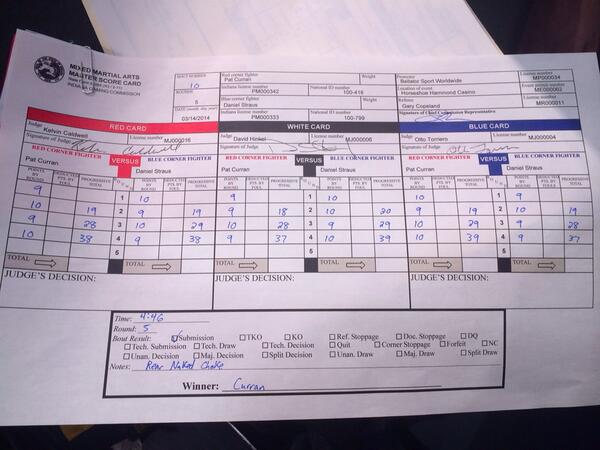 MIXED MARTIAL ARTS
MASTER SCORE CARD
INDIANA GAMING COMMISSION
BOUT NUMBER
10
ROUNDS
5
DATE (month, day, year)
03/14/2014
Red corner fighter Weight
Pat Curran
Indiana license number National ID number
PM000342 100-416
Blue corner fighter Weight
Daniel Straus
Indiana license number National ID number
PM000333 100-799
Promoter License number
Bellator Sport Worldwide MP000034
Location of event Event permit number
Horseshoe Hammond Casino ME000062
Referee License number
Gary Copeland MR000011
Signature of Chief Commission Representative
RED CARD WHITE CARD BLUE CARD
Judge License number Judge License number Judge License number
Kelvin Caldwell MJ000016 David Hinkel MJ000006 Otto Torriero MJ000004
Signature of Judge Signature of Judge Signature of Judge
RED CORNER FIGHTER VERSUS BLUE CORNER FIGHTER RED CORNER FIGHTER VERSUS BLUE CORNER FIGHTER RED CORNER FIGHTER VERSUS BLUE CORNER FIGHTER
Pat Curran Daniel Straus Pat Curran Daniel Straus Pat Curran Daniel Straus
POINTS BY ROUND DEDUCTED PTS. BY FOUL PROGRESSIVE TOTAL ROUND POINTS BY ROUND DEDUCTED PTS. BY FOUL PROGRESSIVE TOTAL POINTS BY ROUND DEDUCTED PTS. BY FOUL PROGRESSIVE TOTAL ROUND POINTS BY ROUND DEDUCTED PTS. BY FOUL PROGRESSIVE TOTAL POINTS BY ROUND DEDUCTED PTS. BY FOUL PROGRESSIVE TOTAL ROUND POINTS BY ROUND DEDUCTED PTS. BY FOUL PROGRESSIVE TOTAL
9 1 10 9 1 10 10 1 9
10 19 2 9 19 9 18 2 10 20 9 19 2 10 19
9 28 3 10 29 10 28 3 9 29 10 29 3 9 28
10 38 4 9 38 9 37 4 10 39 10 39 4 9 37
5 5 5
TOTAL TOTAL TOTAL TOTAL TOTAL TOTAL
JUDGE'S DECISION: JUDGE'S DECISION: JUDGE'S DECISION:
Time: 4:46
Round: 5
Bout Result: Submission TKO KO Ref. Stoppage Doc. Stoppage DQ
Tech. Submission Tech. Draw Tech. Decision Quit Corner Stoppage Forfeit NC
Unan. Decision Maj. Decision Split Decision Unan. Draw Maj. Draw Split Draw
Notes: Rear Naked Choke
Winner: Curran